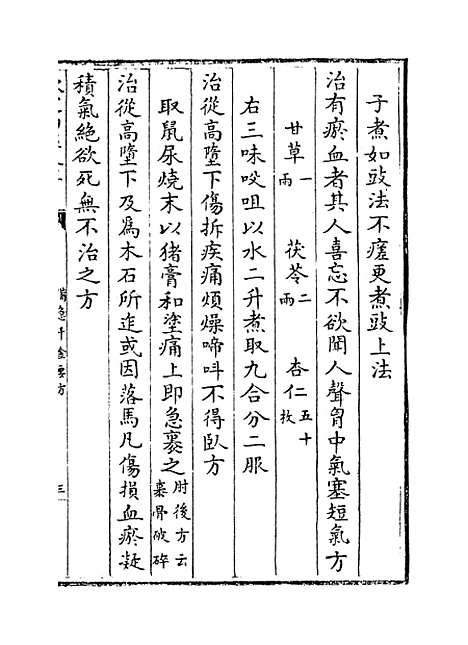 子煮如豉法不瘥更煮豉上法
治有瘀血者其人喜忘不欲聞人聲胷中氣塞短氣方
甘草一兩 茯苓二兩 杏仁五十枚
右三味㕮咀以水二升煮取九合分二服
治從高墮下傷折疾痛煩燥啼呌不得臥方
取鼠屎燒末以猪膏和塗痛上即急裹之肘後方云裹骨破碎
治從高墮下及爲木石所迮或因落馬凡傷損血瘀凝
積氣絶欲死無不治之方
備急千金要方
三